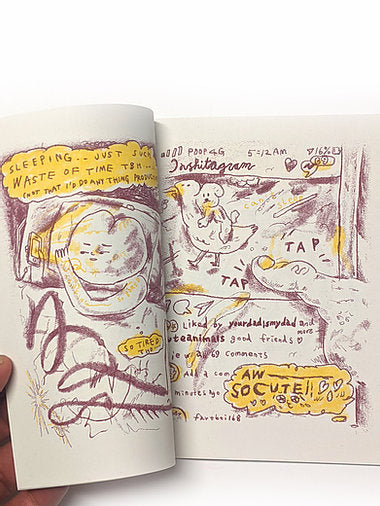 SLEEPING... JUST SUCH
WASTE OF TIME TBH...
(NOT THAT I'D DO ANYTHING PRODUC
SO TIRED
THO
POOP4G 5:12 AM 16%
Inshitagram
TAP
TAP
Liked by yourdadismydad and
more
uteanimals good friends
iew all 69 comments
Add a com
minutes ago
AW
SO CUTE!!